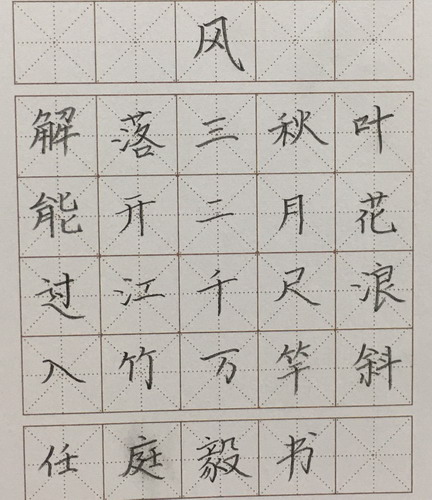 风
解落三秋叶
能开二月花
过江千尺浪
入竹万竿斜
任庭毅书